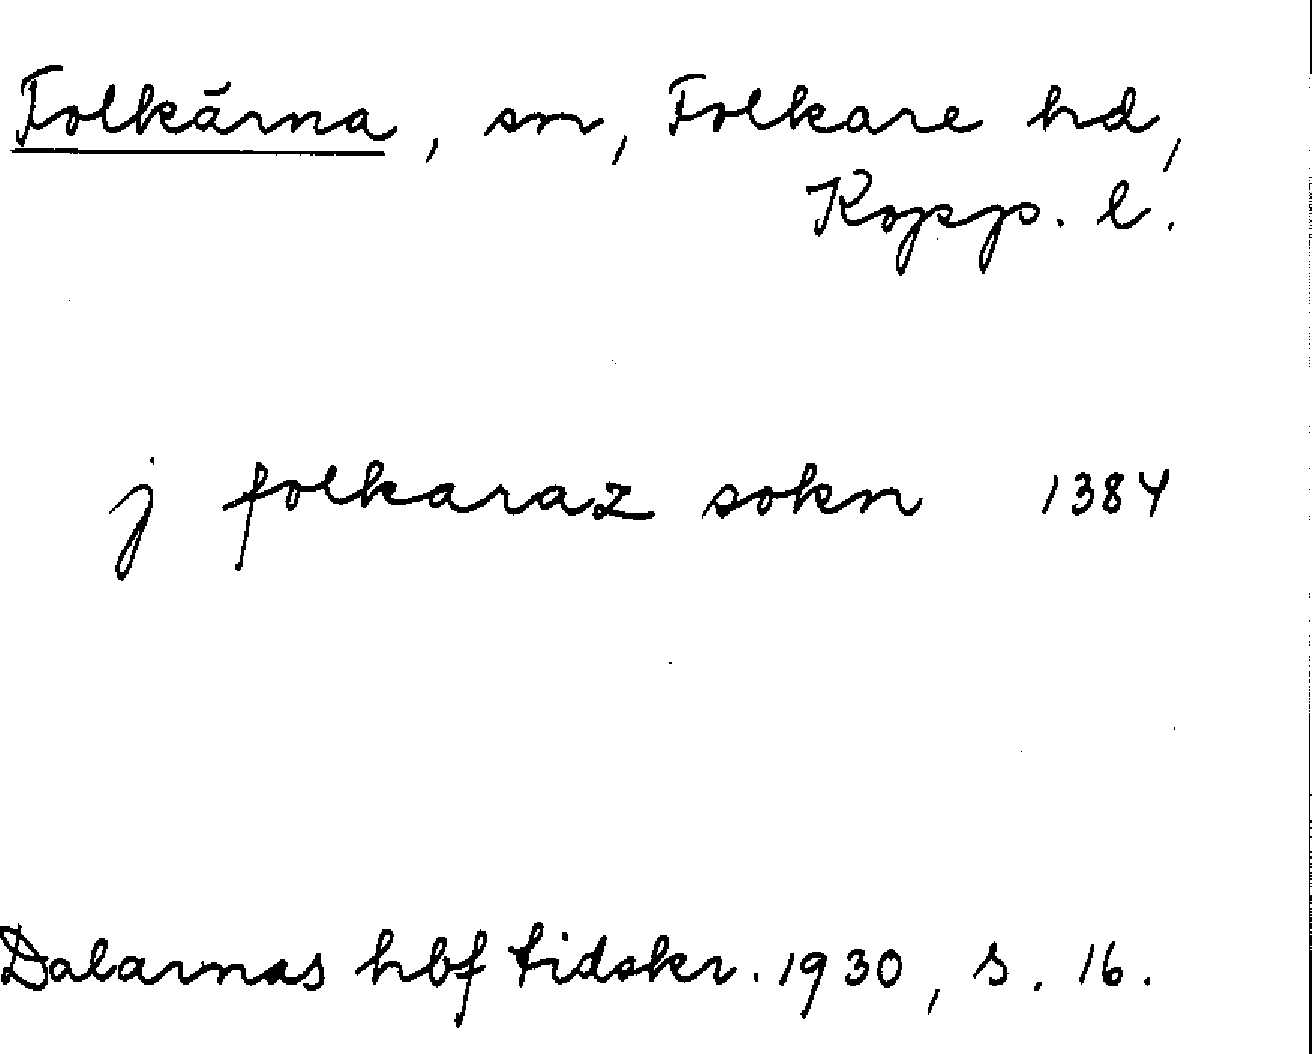 Folkärna, sn, Folkare hd,
Kopp. l.
j folkaraz sokn 1384
Dalarnas hbf tidskr. 1930, s. 16.